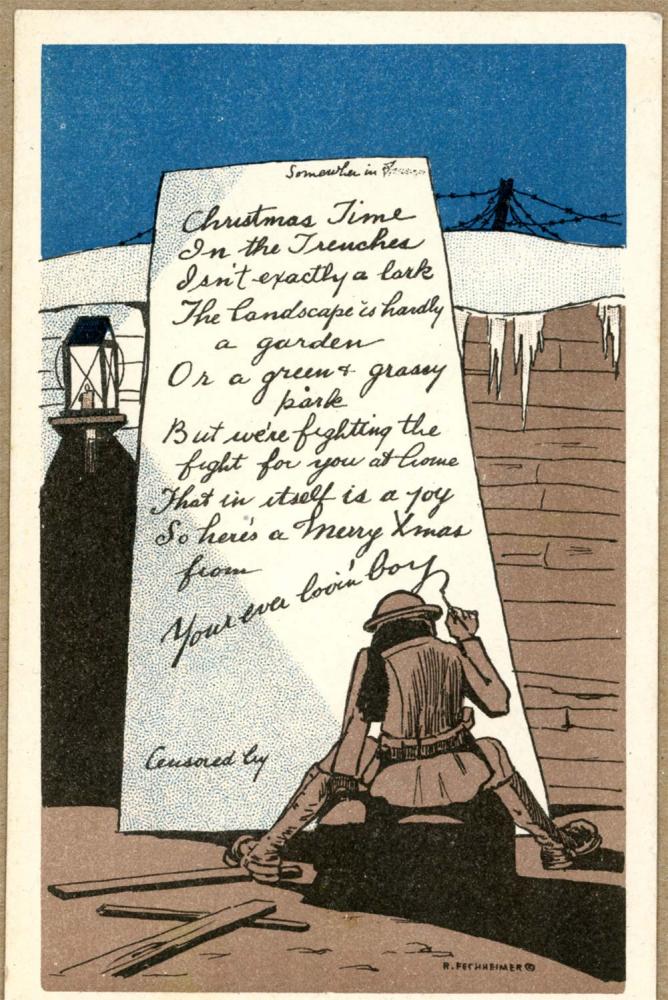 Somewhere in France
Christmas Time
In the Trenches
Isn't exactly a lark
The landscape is hardly
a garden
Or a green & grassy
park
But we're fighting the
fight for you at home
That in itself is a joy
So here's a Merry Xmas
from
Your ever lovin' boy
Censored by
R. FECHHEIMER ©